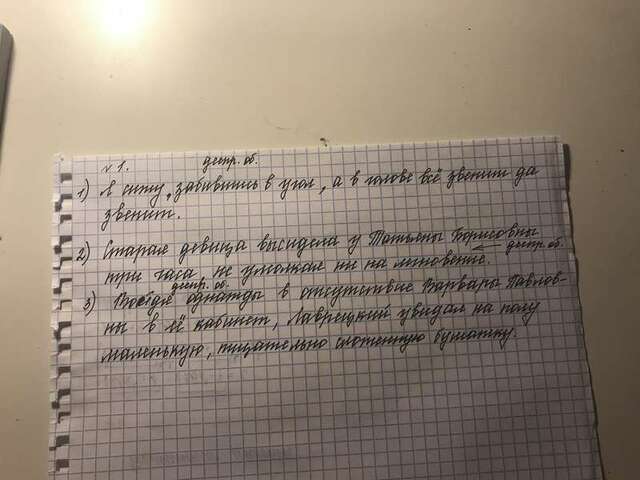 № 1. деепр. об.
1) Я сижу, забившись в угол, а в голове всё звенит да
звенит.
2) Старая девица высидела у Татьяны Борисовны
деепр. об.
три часа не умолкая ни на мгновение.
деепр. об.
3) Войдя однажды в отсутствие Варвары Павлов-
ны в её кабинет, Лаврецкий увидал на полу
маленькую, тщательно сложенную бумажку.